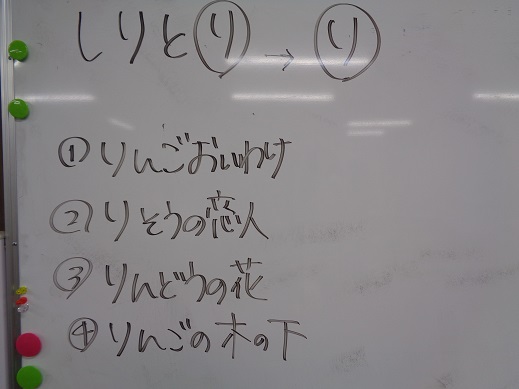 しりとり→り
①りんごおいわけ
②りそうの恋人
③りんどうの花
④りんごの木の下